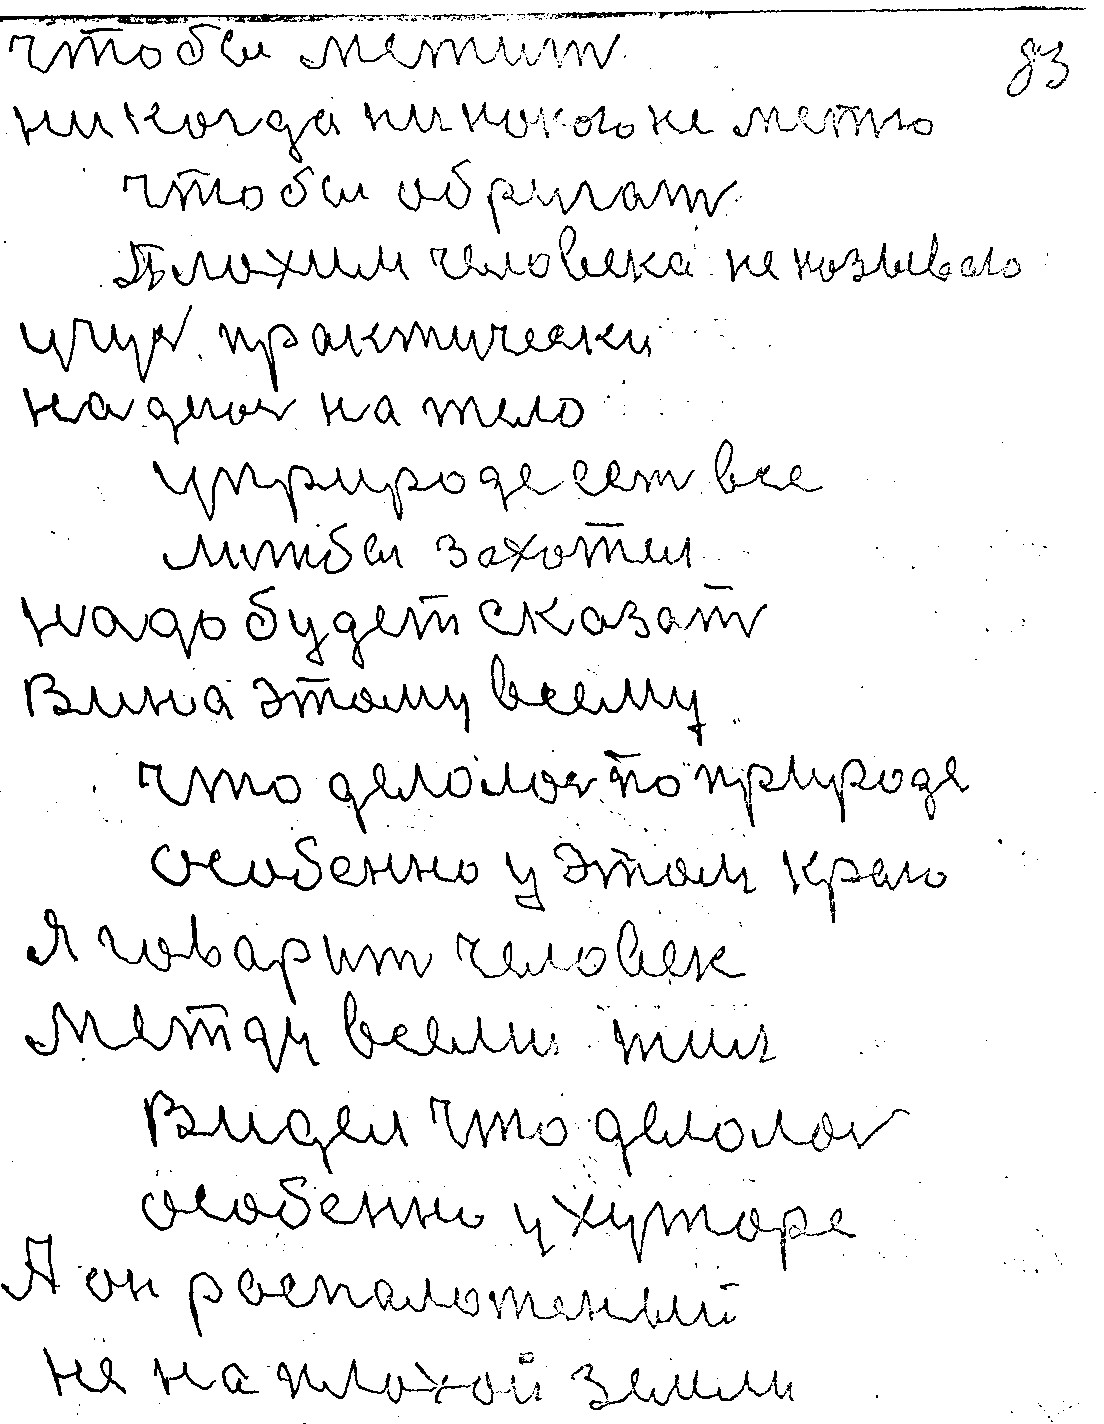 83
чтобы метит
никогда ни нокого не метю
чтобы обругат
Плохим человека не называю
учуя практически
на делоя на тело
уприроде сет все
литбы захотел
надо будет сказат
Вина этому всему
что делолоя по природе
особенно у этом краю
Я говарит человек
Метду всеми тил
Видел что делолоя
особенно у хуторе
А он роспалотеный
не на плохой земли